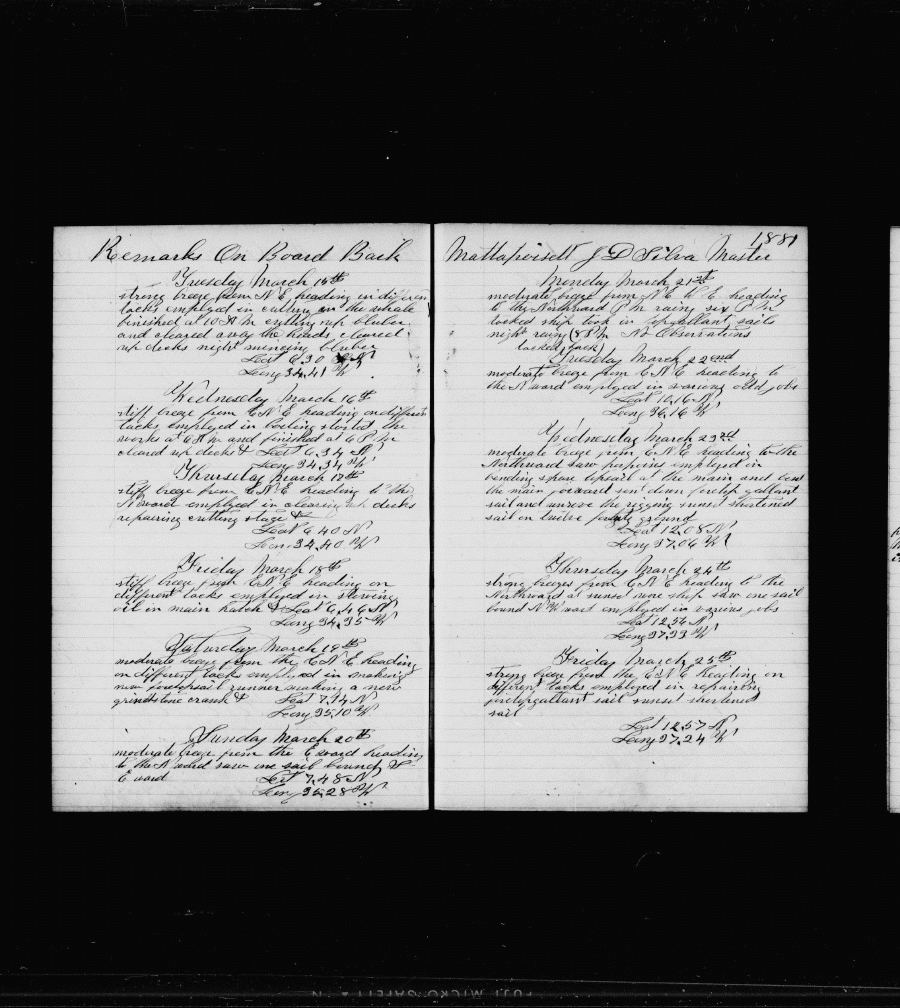 Remarks On Board Bark
Tuesday March 15th
strong breeze from N E heading in different
tacks employed in cutting in the whale
finished at 10 A M cutting up bluber
and cleared away the heads cleared
up decks night mincing bluber
Lat 6.30 N
Long 34.41 W
Wednesday March 16th
stiff breeze from E N E heading on different
tacks employed in boiling started the
works at 6 A M and finished at 6 P M
cleared up decks & Lat 6.34 N
Long 34.34 W
Thursday March 17th
stiff breeze from E N E heading to the
N ward employed in clearing up decks
repairing cutting stage &
Lat 6 40 N
Long 34.40 W
Friday March 18th
stiff breeze from E N E heading on
different tacks employed in stowing
oil in main hatch & Lat 6.46 N
Long 34.35 W
Saturday March 19th
moderate breeze from the E N E heading
on different tacks employed in making
new foretopsail runner making a new
grindstone crank & Lat 7.14 N
Long 35.10 W
Sunday March 20th
moderate breeze from the E ward heading
to the N ward saw one sail bound
E ward Lat 7.48 N
Long 35.28 W
1881
Mattapoisett J D Silva Master
Monday March 21st
moderate breeze from N E to E heading
to the Northward P M rainy six P M
tacked ship took in topgallant sails
night rainy (8 P M No Observations
tacked back)
Tuesday March 22end
moderate breeze from E N E heading to
the N ward employed in various odd jobs
Lat 10.16 N
Long 36.16 W
Wednesday March 23rd
moderate breeze from E N E heading to the
Northward saw porpoises employed in
bending spare topsail at the main and bent
the main forward sent down foretop gallant
sail and unrove the rigging sunset shortened
sail on twelve forty ground
Lat 12.08 N
Long 37.06 W
Thursday March 24th
strong breezes from E N E heading to the
Northward at sunset wore ship saw one sail
bound N W ward employed in various jobs
Lat 12.56 N
Long 37.33 W
Friday March 25th
strong breeze from the E N E heading on
different tacks employed in repairing
foretopgallant sail sunset shortened
sail
Lat 12.57 N
Long 37.24 W
FUJI MICRO SAFETY